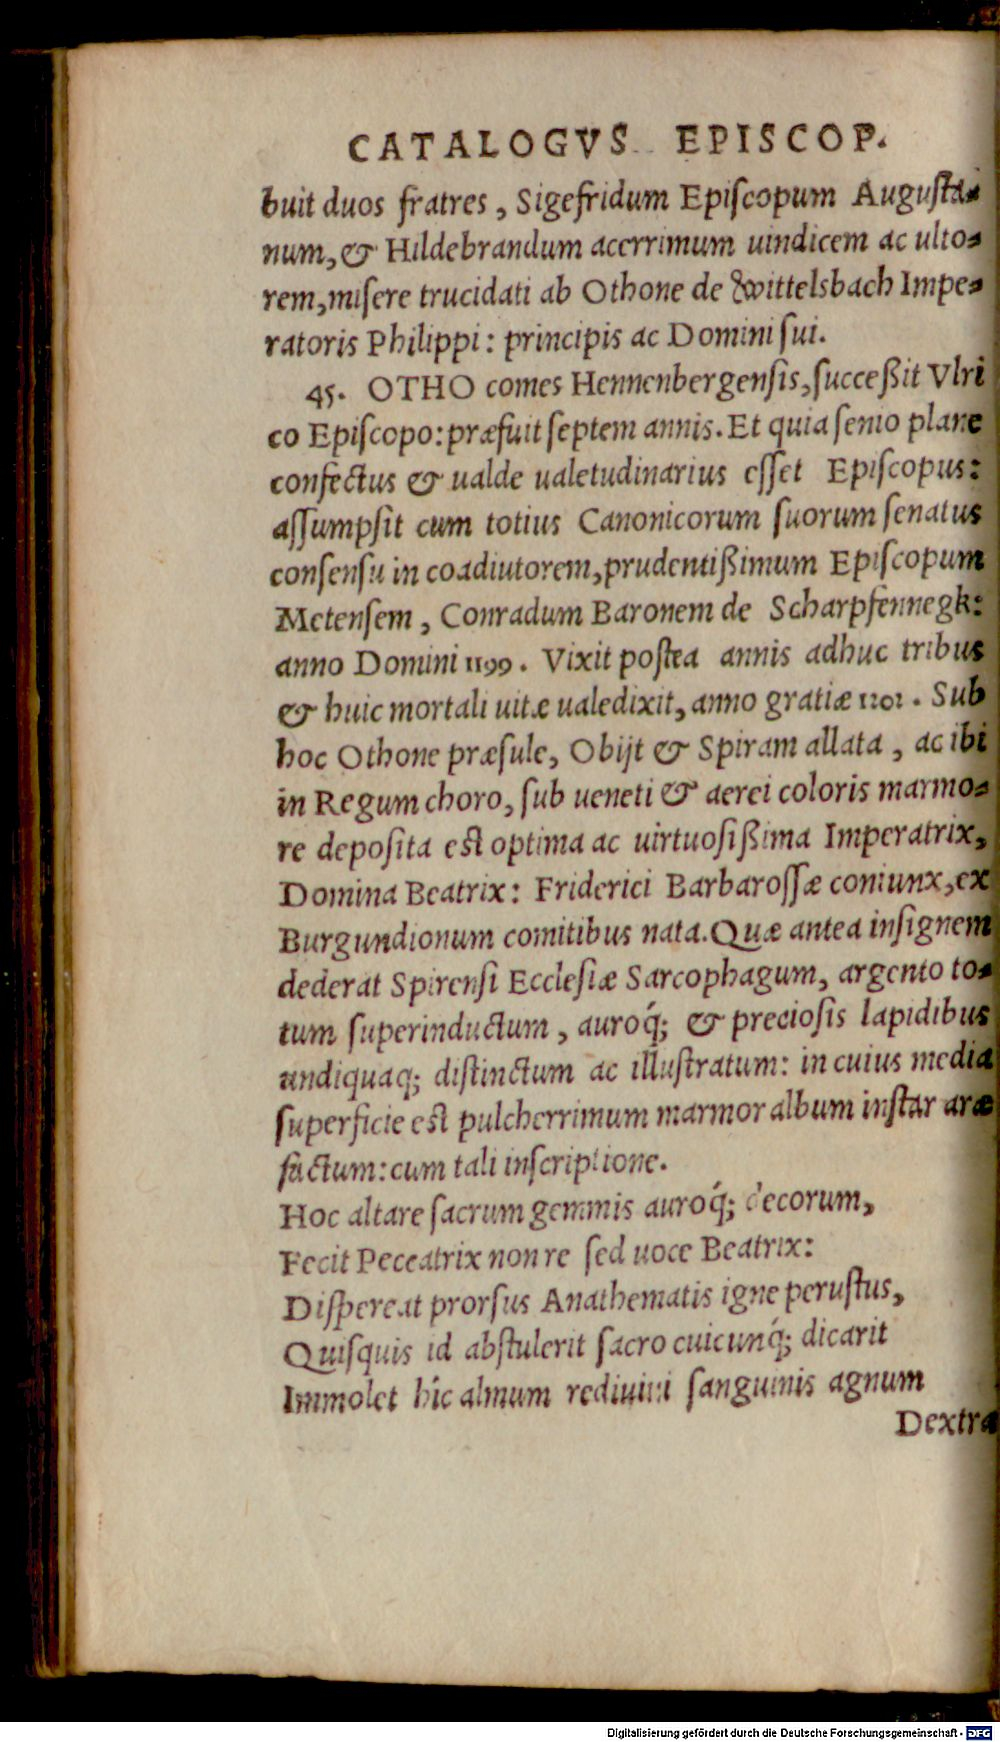 CATALOGVS EPISCOP.
buit duos fratres, Sigefridum Epiſcopum Auguſta-
num, & Hildebrandum acerrimum uindicem ac ulto-
rem, miſere trucidati ab Othone de Wittelsbach Impe-
ratoris Philippi: principis ac Domini ſui.
45. OTHO comes Hennenbergenſis, ſucceßit Vlri
co Epiſcopo: præfuit ſeptem annis. Et quia ſenio plane
confectus & ualde ualetudinarius eſſet Epiſcopus:
aſſumpſit cum totius Canonicorum ſuorum ſenatus
conſenſu in coadiutorem, prudentißimum Epiſcopum
Metenſem, Conradum Baronem de Scharpfennegk:
anno Domini 1199. Vixit poſtea annis adhuc tribus
& huic mortali uitæ ualedixit, anno gratiæ 1202. Sub
hoc Othone præſule, Obijt & Spiram allata, ac ibi
in Regum choro, ſub ueneti & aerei coloris marmo-
re depoſita eſt optima ac uirtuoſißima Imperatrix,
Domina Beatrix: Friderici Barbaroſſæ coniunx, ex
Burgundionum comitibus nata. Quæ antea inſignem
dederat Spirenſi Eccleſiæ Sarcophagum, argento to-
tum ſuperinductum, auroq́; & precioſis lapidibus
undiquaq; diſtinctum ac illuſtratum: in cuius media
ſuperficie eſt pulcherrimum marmor album inſtar aræ
factum: cum tali inſcriptione.
Hoc altare ſacrum gemmis auroq́; decorum,
Fecit Peccatrix non re ſed uoce Beatrix:
Diſpereat prorſus Anathematis igne peruſtus,
Quiſquis id abſtulerit ſacro cuicunq́; dicarit
Immolet hîc almum rediuiui ſanguinis agnum
Dextra
Digitalisierung gefördert durch die Deutsche Forschungsgemeinschaft - DFG